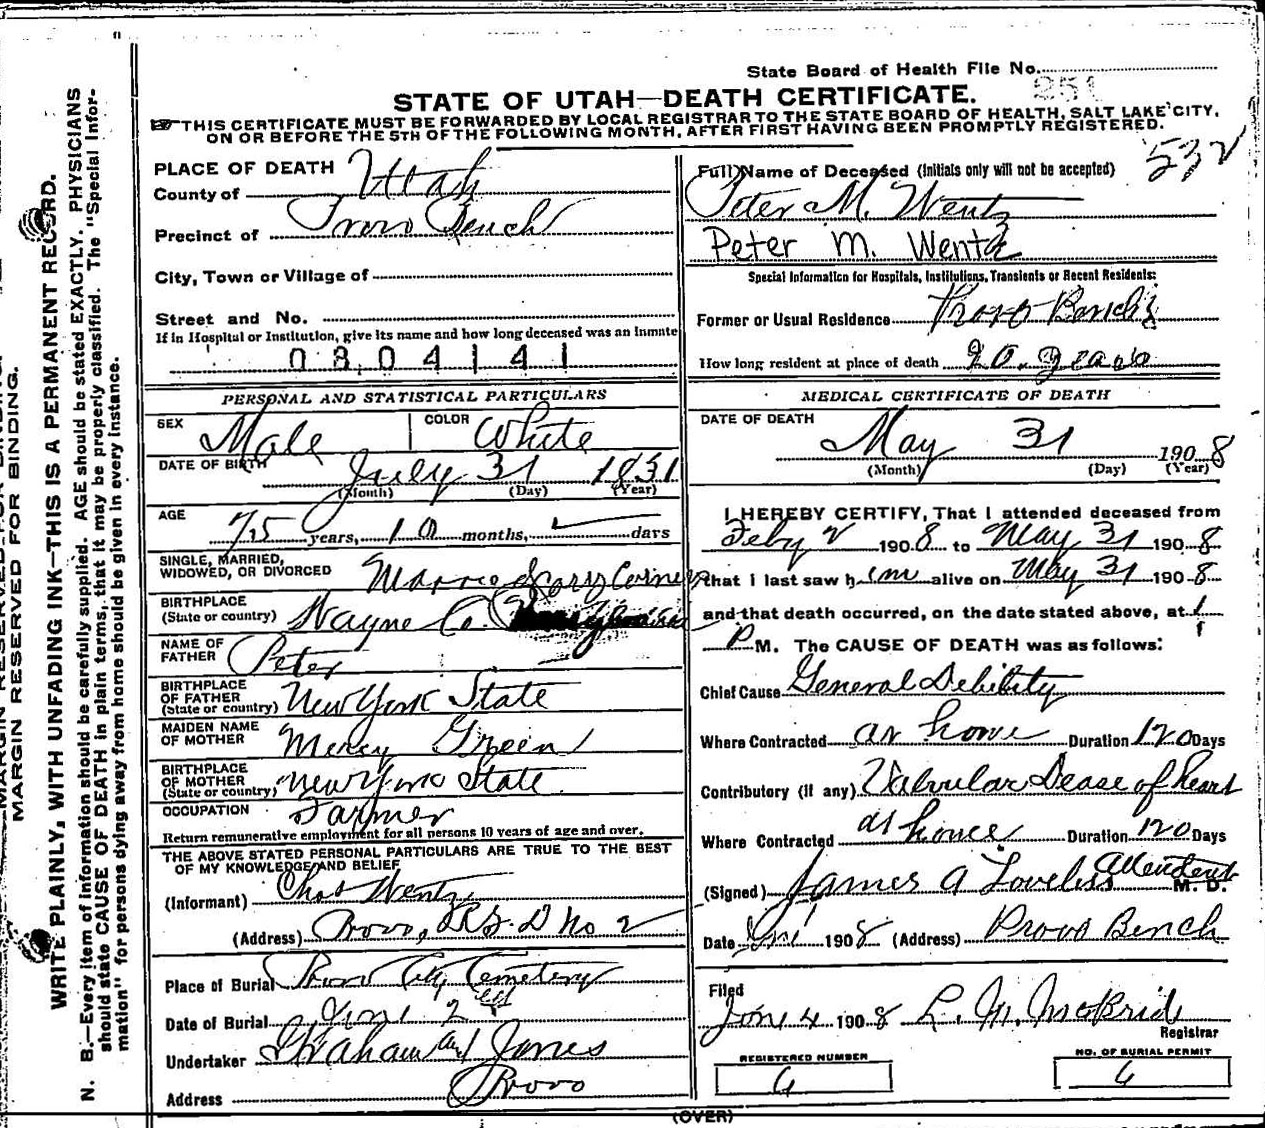 State Board of Health File No. 251
STATE OF UTAH—DEATH CERTIFICATE.
☞THIS CERTIFICATE MUST BE FORWARDED BY LOCAL REGISTRAR TO THE STATE BOARD OF HEALTH, SALT LAKE CITY,
ON OR BEFORE THE 5TH OF THE FOLLOWING MONTH, AFTER FIRST HAVING BEEN PROMPTLY REGISTERED.
532
PLACE OF DEATH
County of Utah
Precinct of Provo Bench
City, Town or Village of
Street and No.
If in Hospital or Institution, give its name and how long deceased was an inmate
0804141
PERSONAL AND STATISTICAL PARTICULARS
SEX Male COLOR White
DATE OF BIRTH July 31 1831
(Month) (Day) (Year)
AGE 75 years, 10 months, days
SINGLE, MARRIED,
WIDOWED, OR DIVORCED Married
BIRTHPLACE
(State or country) Wayne Co.
NAME OF
FATHER Peter
BIRTHPLACE
OF FATHER
(State or country) New York State
MAIDEN NAME
OF MOTHER Mercy Green
BIRTHPLACE
OF MOTHER
(State or country) New York State
OCCUPATION Farmer
Return remunerative employment for all persons 10 years of age and over.
THE ABOVE STATED PERSONAL PARTICULARS ARE TRUE TO THE BEST
OF MY KNOWLEDGE AND BELIEF
(Informant) Chas Wentz
(Address) Provo, R.F.D No 2
Place of Burial Provo City Cemetery
Date of Burial June 2
Undertaker Graham and Jones
Address Provo
Full Name of Deceased (Initials only will not be accepted)
Peter M. Wentz
Peter M. Wentz
Special Information for Hospitals, Institutions, Transients or Recent Residents:
Former or Usual Residence Provo Bench
How long resident at place of death 20 years
MEDICAL CERTIFICATE OF DEATH
DATE OF DEATH
May 31 1908
(Month) (Day) (Year)
I HEREBY CERTIFY, That I attended deceased from
Feby 2 1908 to May 31 1908
that I last saw him alive on May 31 1908
and that death occurred, on the date stated above, at 1
P M. The CAUSE OF DEATH was as follows:
Chief Cause General Debility
Where Contracted at home Duration 120 Days
Contributory (If any) Valvular Dease of heart
Where Contracted at home Duration 120 Days
(Signed) James A Loveless Attendent M. D.
Date Jun 1 1908 (Address) Provo Bench
Filed
June 4 1908 L. M. McBride
Registrar
REGISTERED NUMBER
6
NO. OF BURIAL PERMIT
6
(OVER)
MARGIN RESERVED FOR BINDING.
MARGIN RESERVED FOR BINDING.
WRITE PLAINLY, WITH UNFADING INK—THIS IS A PERMANENT RECORD.
N. B.—Every item of information should be carefully supplied. AGE should be stated EXACTLY. PHYSICIANS
should state CAUSE OF DEATH in plain terms, that it may be properly classified. The "Special Infor-
mation" for persons dying away from home should be given in every instance.